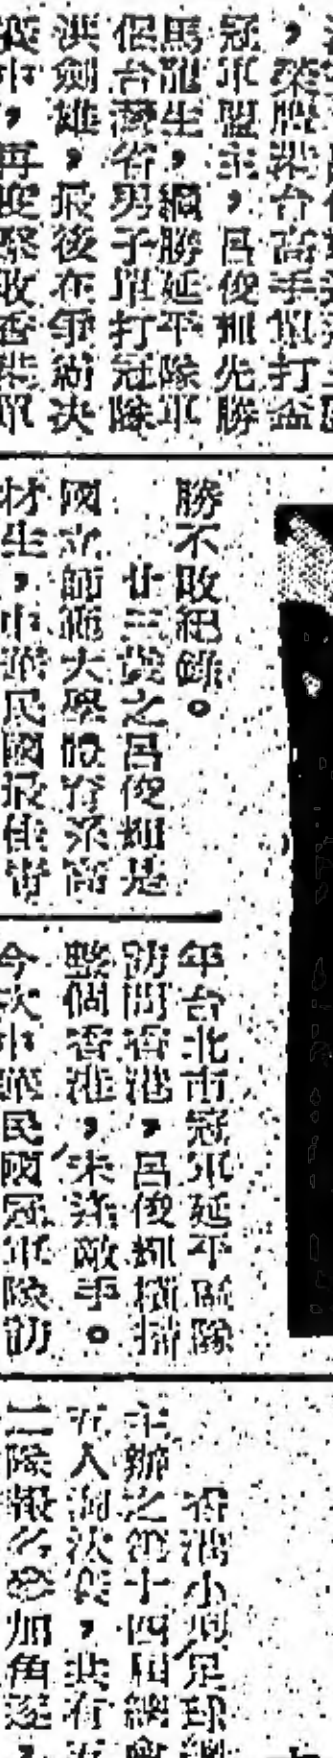 ，榮膺港台高手單打盃
冠軍盟主，呂俊輝先勝
馬龍生，續勝延平隊軍
個台灣省男子單打冠隊
洪劍雄，最後在爭紛決
賽中，再度擊敗香港軍
勝不敗紀錄。
廿三歲之呂俊輝是
國立師範大學體育系高
材生，中華民國最佳
年台北市冠軍延平隊
訪問香港，呂俊輝橫掃
整個香港，未逢敵手。
今次中華民國冠軍隊訪
香港小型足球總
主辦之第十四屆總會
五人淘汰賽，共有
二隊報名參加角逐，